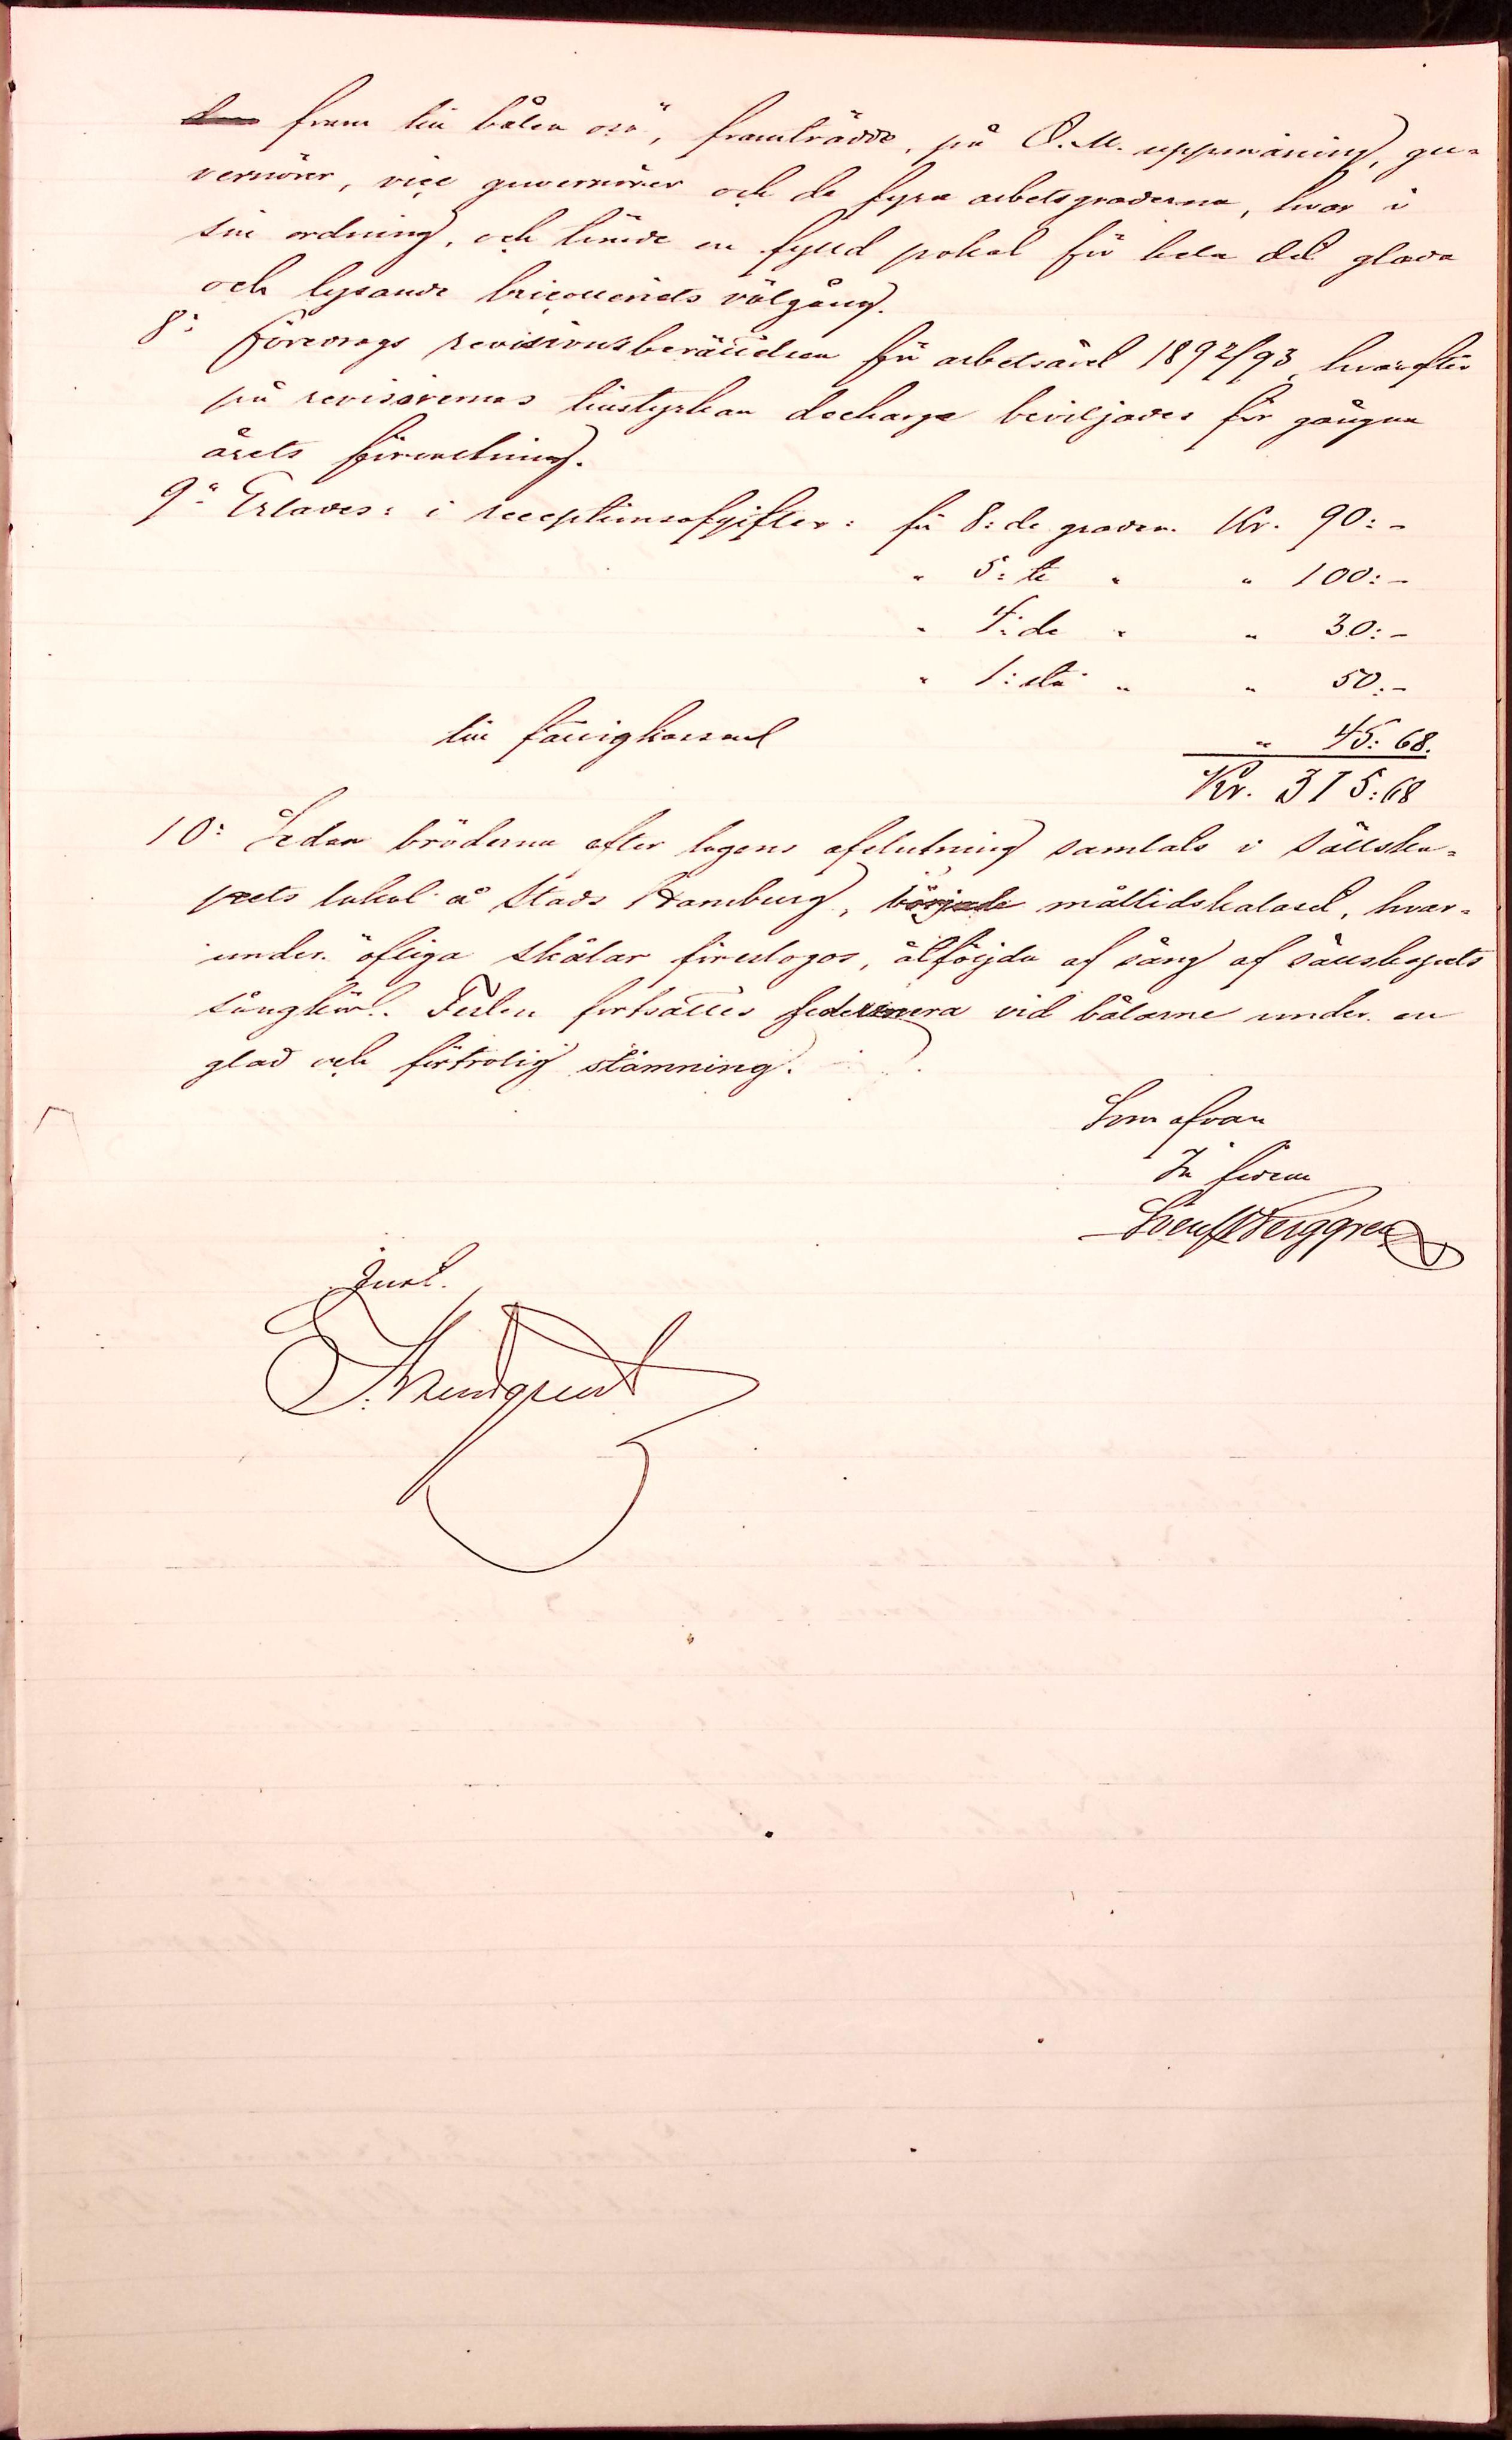 fram till bålen och, framträdde, på O. M. uppmaning, gu-
vernörer, vice guvernörer och de fyra arbetsgraderna, hvar i
sin ordning, och tömde en fylld pokal för hela det glada
och lysande bricolleriets välgång.
8: Föredrogs revisionsberättelsen för arbetsåret 1892/93, hvarefter
på revisorernas tillstyrkan decharge beviljades för gångna
årets förvaltning.
9: Erlades: i receptionsafgifter: för 8:de graden Kr. 90:-
" 5:te " " 100:-
" 4:de " " 30:-
" 1:sta " " 50:-
till fattigkassan " 45:68.
Kr. 315:68
10: Sedan bröderna efter logens afslutning samlats i Sällska-
pets lokal å Stads Hamburg, började måltidskalaset, hvar-
under öfliga skålar föreslogos, åtföljda af sång af sällskapets
sångkör. Festen fortsattes sedermera vid bålarne under en
glad och förtrolig stämning.
Som ofvan
In fidem
Berggren
Just.